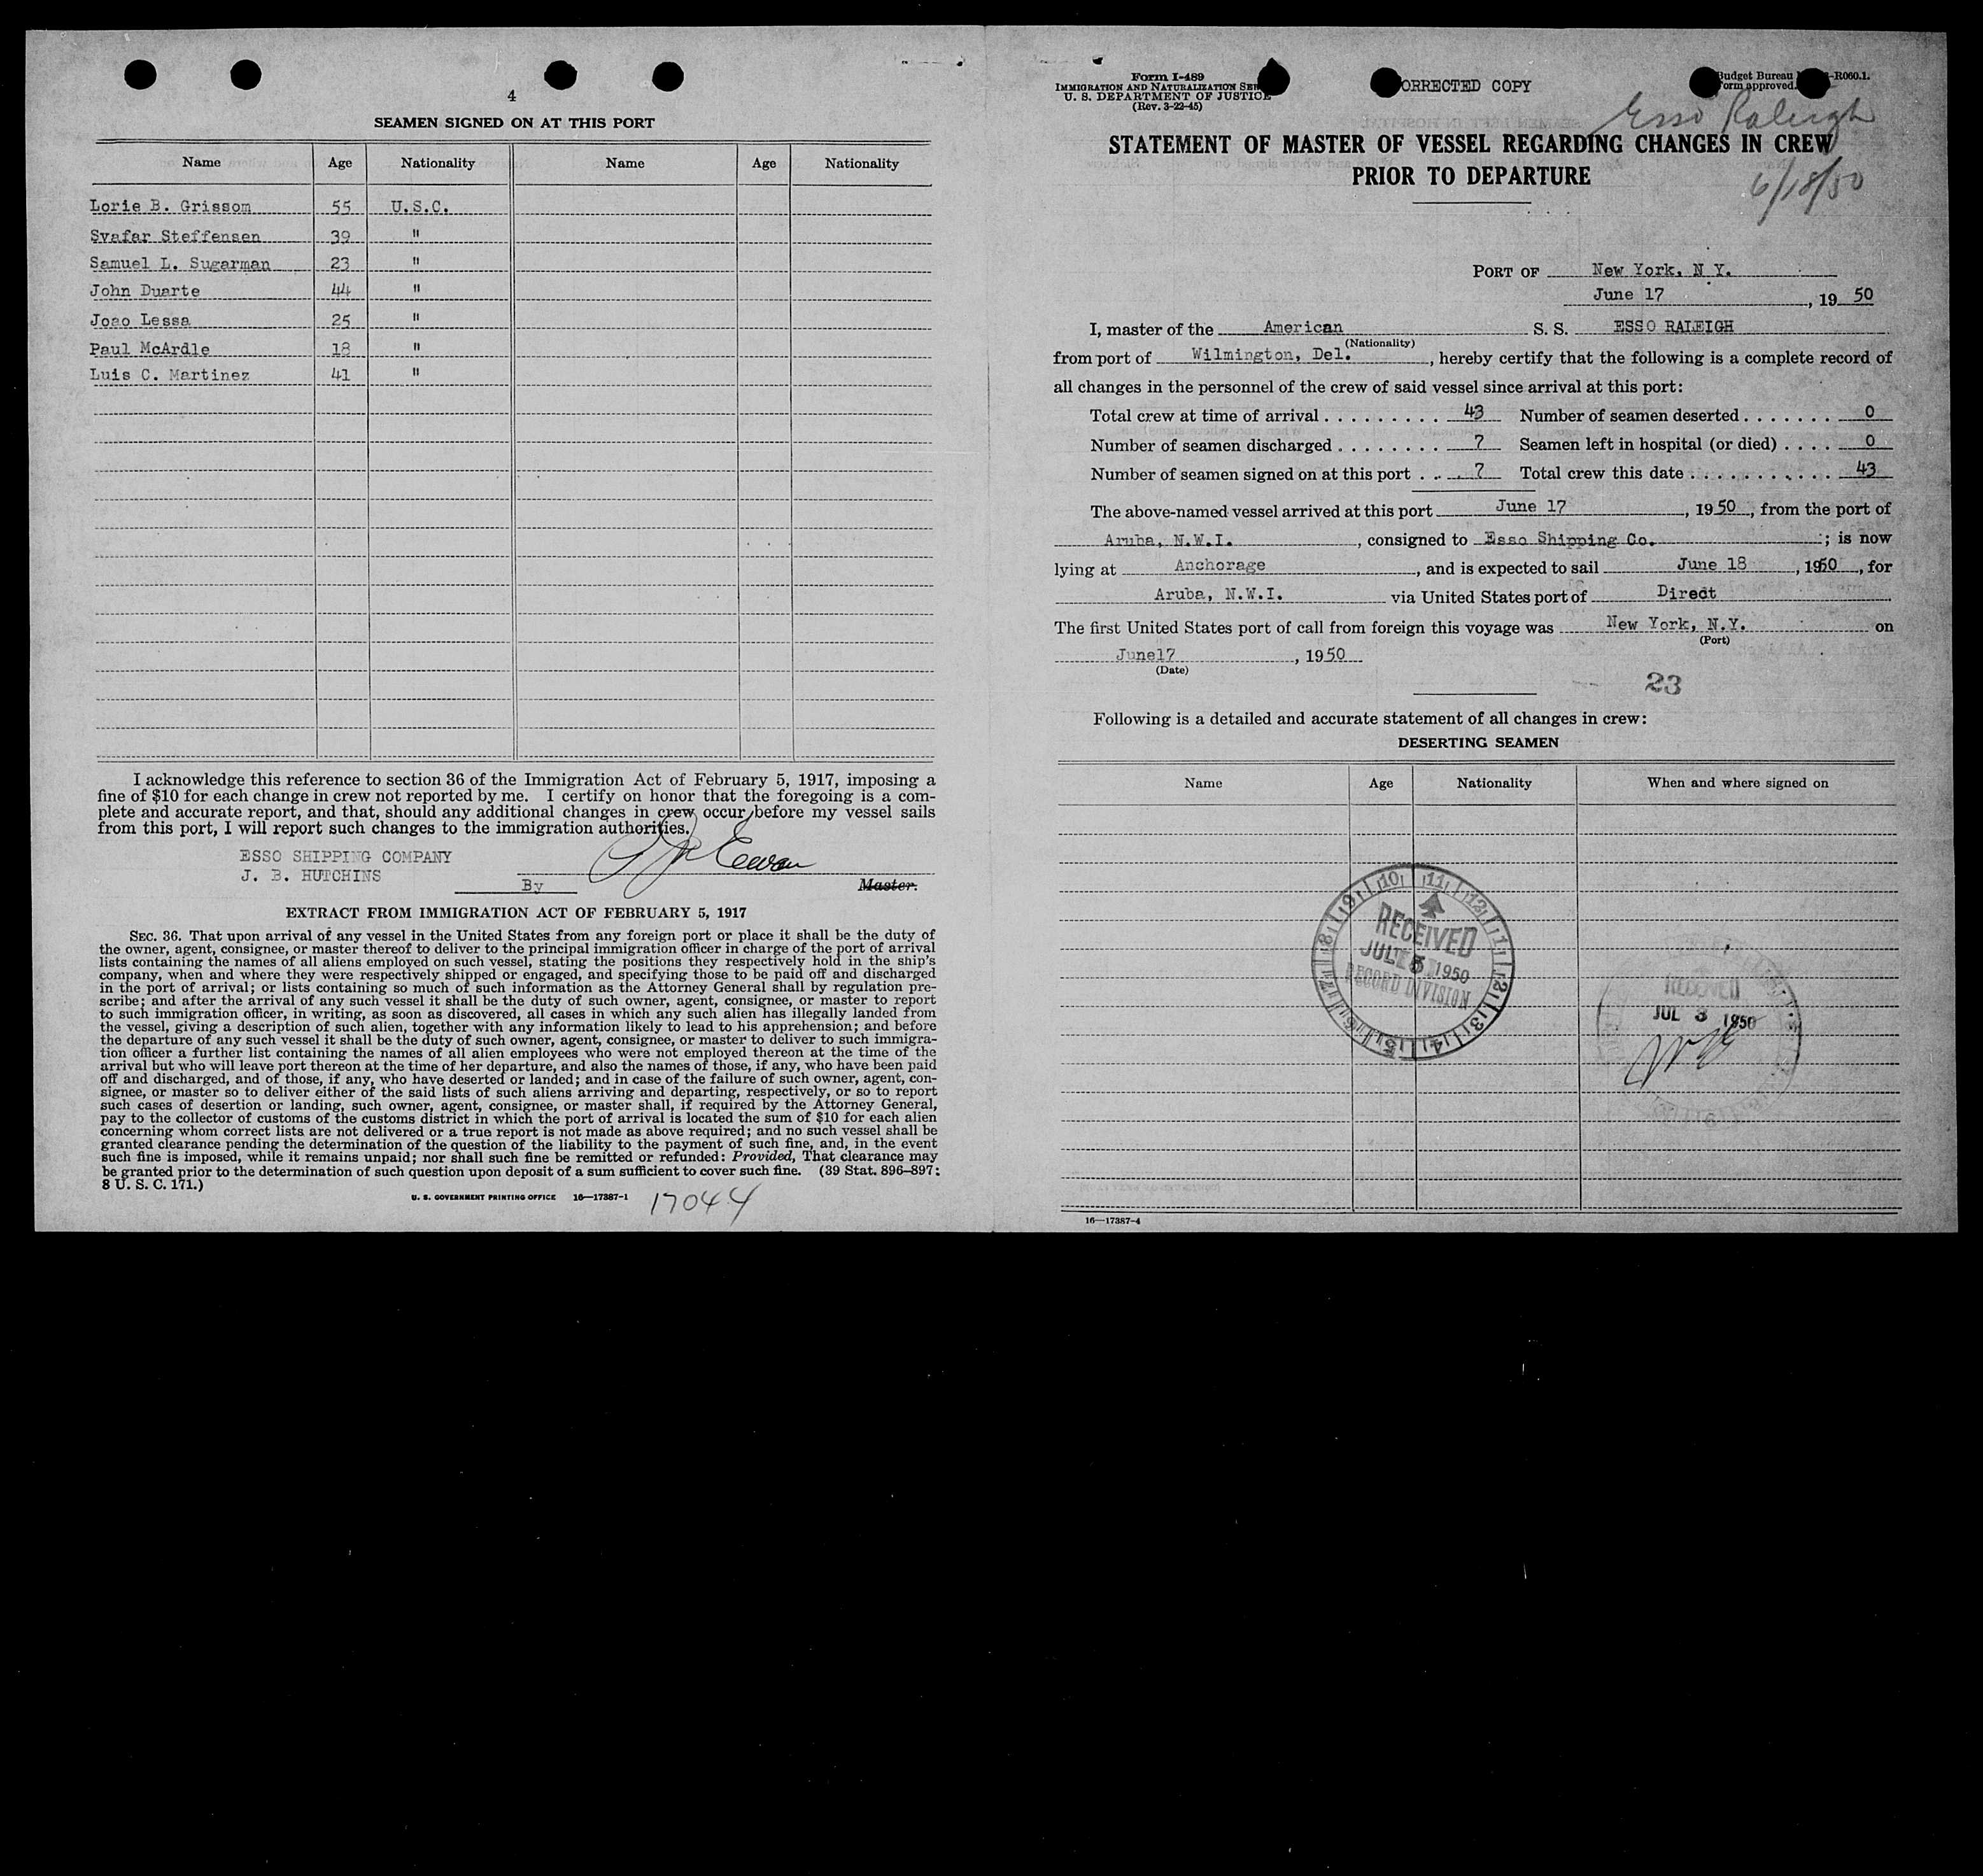 4
SEAMEN SIGNED ON AT THIS PORT
Name Age Nationality Name Age Nationality
Lorie B. Grissom 55 U.S.C.
Svafar Steffensen 39 "
Samuel L. Sugarman 23 "
John Duarte 44 "
Joao Lessa 25 "
Paul McArdle 18 "
Luis C. Martinez 41 "
I acknowledge this reference to section 36 of the Immigration Act of February 5, 1917, imposing a
fine of $10 for each change in crew not reported by me. I certify on honor that the foregoing is a com-
plete and accurate report, and that, should any additional changes in crew occur before my vessel sails
from this port, I will report such changes to the immigration authorities.
ESSO SHIPPING COMPANY
J. B. HUTCHINS
By Master.
EXTRACT FROM IMMIGRATION ACT OF FEBRUARY 5, 1917
SEC. 36. That upon arrival of any vessel in the United States from any foreign port or place it shall be the duty of
the owner, agent, consignee, or master thereof to deliver to the principal immigration officer in charge of the port of arrival
lists containing the names of all aliens employed on such vessel, stating the positions they respectively hold in the ship's
company, when and where they were respectively shipped or engaged, and specifying those to be paid off and discharged
in the port of arrival; or lists containing so much of such information as the Attorney General shall by regulation pre-
scribe; and after the arrival of any such vessel it shall be the duty of such owner, agent, consignee, or master to report
to such immigration officer, in writing, as soon as discovered, all cases in which any such alien has illegally landed from
the vessel, giving a description of such alien, together with any information likely to lead to his apprehension; and before
the departure of any such vessel it shall be the duty of such owner, agent, consignee, or master to deliver to such immigra-
tion officer a further list containing the names of all alien employees who were not employed thereon at the time of the
arrival but who will leave port thereon at the time of her departure, and also the names of those, if any, who have been paid
off and discharged, and of those, if any, who have deserted or landed; and in case of the failure of such owner, agent, con-
signee, or master so to deliver either of the said lists of such aliens arriving and departing, respectively, or so to report
such cases of desertion or landing, such owner, agent, consignee, or master shall, if required by the Attorney General,
pay to the collector of customs of the customs district in which the port of arrival is located the sum of $10 for each alien
concerning whom correct lists are not delivered or a true report is not made as above required; and no such vessel shall be
granted clearance pending the determination of the question of the liability to the payment of such fine, and, in the event
such fine is imposed, while it remains unpaid; nor shall such fine be remitted or refunded: Provided, That clearance may
be granted prior to the determination of such question upon deposit of a sum sufficient to cover such fine. (39 Stat. 896–897;
8 U. S. C. 171.)
U. S. GOVERNMENT PRINTING OFFICE 16—17387-1
17044
Form I-489
IMMIGRATION AND NATURALIZATION SER
U. S. DEPARTMENT OF JUSTICE
(Rev. 3-22-45)
ORRECTED COPY
Budget Bureau -R060.1.
Form approved.
Esso Raleigh
STATEMENT OF MASTER OF VESSEL REGARDING CHANGES IN CREW
PRIOR TO DEPARTURE
6/18/50
PORT OF New York, N Y.
June 17, 19 50
I, master of the American S. S. ESSO RALEIGH
(Nationality)
from port of Wilmington, Del., hereby certify that the following is a complete record of
all changes in the personnel of the crew of said vessel since arrival at this port:
Total crew at time of arrival 43 Number of seamen deserted 0
Number of seamen discharged 7 Seamen left in hospital (or died) 0
Number of seamen signed on at this port 7 Total crew this date 43
The above-named vessel arrived at this port June 17, 1950, from the port of
Aruba, N.W.I., consigned to Esso Shipping Co.; is now
lying at Anchorage, and is expected to sail June 18, 1950, for
Aruba, N.W.I. via United States port of Direct
The first United States port of call from foreign this voyage was New York, N.Y. on
(Port)
June17, 1950
(Date)
23
Following is a detailed and accurate statement of all changes in crew:
DESERTING SEAMEN
Name Age Nationality When and where signed on
RECEIVED
JUL 5 1950
RECORD DIVISION
RECEIVED
JUL 3 1950
16—17387-4